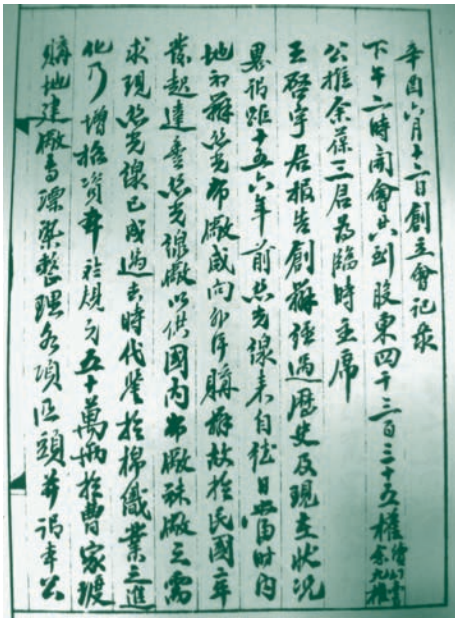 辛酉六月十二日創立會記录
下午二時開會共到股東四千三百三十五權
公推余葆三君為臨時主席
王啓宇君報告創辦經過歷史及現在狀況
畧謂距十五六年前絲光線来自德日當時内
地初辦絲光布廠咸向外洋購辦故於民國二年
發起達豊絲光線廠以供國内布廠袜廠之需
求現絲光線已成過去時代鑒於棉織業之進
化乃增拓資本
規爲五十萬兩於曹家渡
購地建廠專漂染整理各項疋頭并謂本公